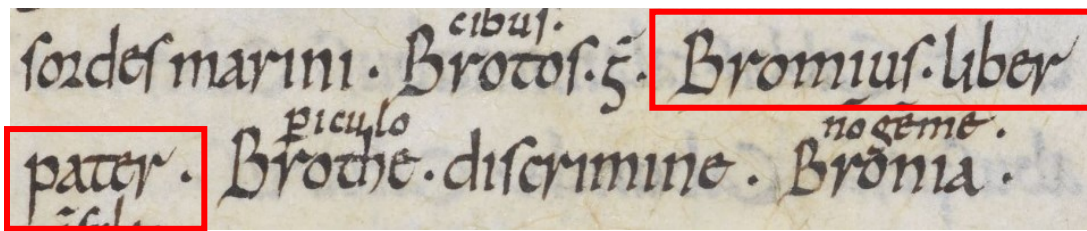 cibus.
sordes marini. Brotos. g̃. Bromius. liber
piculo nō gēme.
pater. Brothe. discrimine. Brōnia.